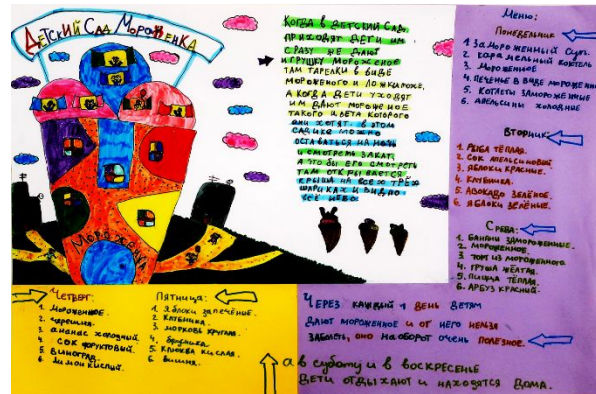 Детский Сад Мороженка
Когда в детский сад,
приходят дети им
сразу же дают
игрушку мороженое
там тарелки в виде
мороженого и ложки тоже,
а когда дети уходят
им дают мороженое
такого цвета которого
они хотят. в этом
садике можно
оставаться на ночь
и смотреть закат,
а что бы его смотреть
там открывается
крыша на всех трёх
шариках и видно
всё небо.
Мороженка
Меню:
Понедельник
1 Замороженный суп.
2. карамельный коктель
3. Мороженное
4. печенье в виде мороженн
5. Котлеты замороженные
6. Апельсины холодние
Вторник:
1. Рыба тёплая.
2. Сок апельсиновый
3. Яблоки красные.
4. Клубника.
5. Авокадо зелёное.
6. Яблоки зелёные.
Среда:
1. Бананы замороженные.
2. Мороженное.
3. торт из мороженного
4. груша жёлтая.
5. Пицца тёплая.
6. Арбуз красный.
Четверг:
1. Мороженное.
2. черешня.
3. ананас холодный
4. сок фруктовый.
5. Виноград.
6. лимон кислый.
Пятница:
1. Яблоки запечёние.
2. Клубника.
3. морковь круглая.
4. брусника.
5. Клюква кислая.
6. вишня.
Через каждый 1 день детям
дают мороженное и от него нельзя
заболеть, оно наоборот очень полезное.
а в суботу и в воскресенье
дети отдыхают и находятся дома.